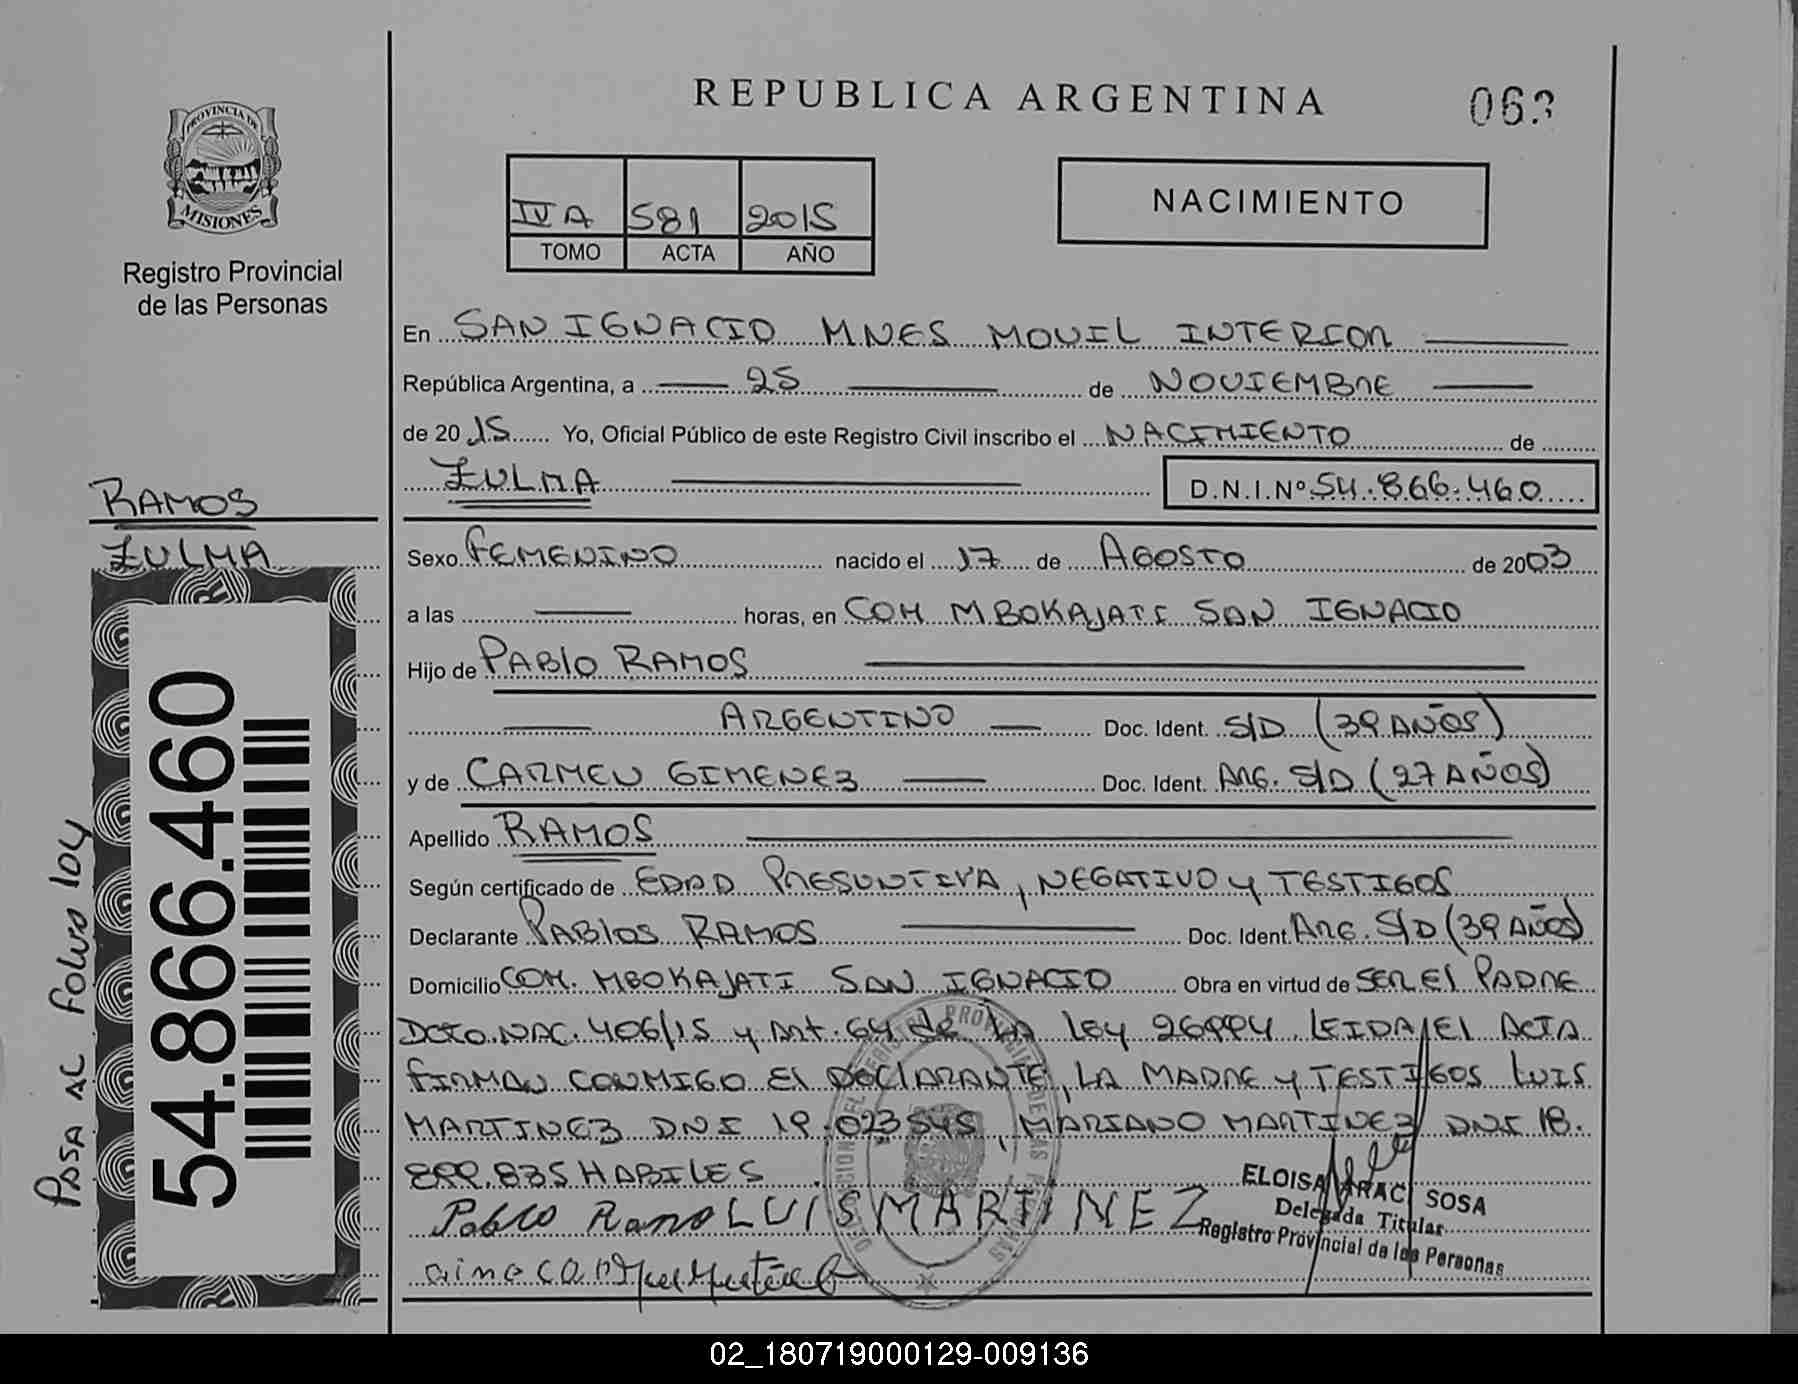 REPUBLICA ARGENTINA
063
PROVINCIA DE
MISIONES
Registro Provincial
de las Personas
IV A 581 2015
TOMO ACTA AÑO
NACIMIENTO
En SAN IGNACIO MNES MOVIL INTERCON
República Argentina, a 25 de NOVIEMBRE
de 2015 Yo, Oficial Público de este Registro Civil inscribo el NACIMIENTO de
ZULMA D.N.I.Nº 54.866.460
RAMOS
ZULMA
Sexo FEMENINO nacido el 17 de AGOSTO de 2003
a las horas, en COM MBOKAJATI SAN IGNACIO
Hijo de PABLO RAMOS
ARGENTINO Doc. Ident. S/D (39 AÑOS)
y de CARMEN GIMENEZ Doc. Ident. ARG. S/D (27 AÑOS)
Apellido RAMOS
Según certificado de EDAD PRESUNTIVA, NEGATIVO y TESTIGOS
Declarante PABLOS RAMOS Doc. Ident. ARG. S/D (39 AÑOS)
Domicilio COM. MBOKAJATI SAN IGNACIO Obra en virtud de SER EL PADRE
DCTO. NAC. 406/15 y Art. 64 de LA ley 26994. LEIDA EL ACTA
FIRMAN CONMIGO EL DECLARANTE, LA MADRE y TESTIGOS LUIS
MARTINEZ DNI 19.023545, MARIANO MARTINEZ DNI 18.
899.835 HABILES
Pablo Ramo LUIS MARTINEZ
ELOISA ARACI SOSA
Delegada Titular
Registro Provincial de las Personas
54.866.460
PASA AL FOLIO 104
02_180719000129-009136